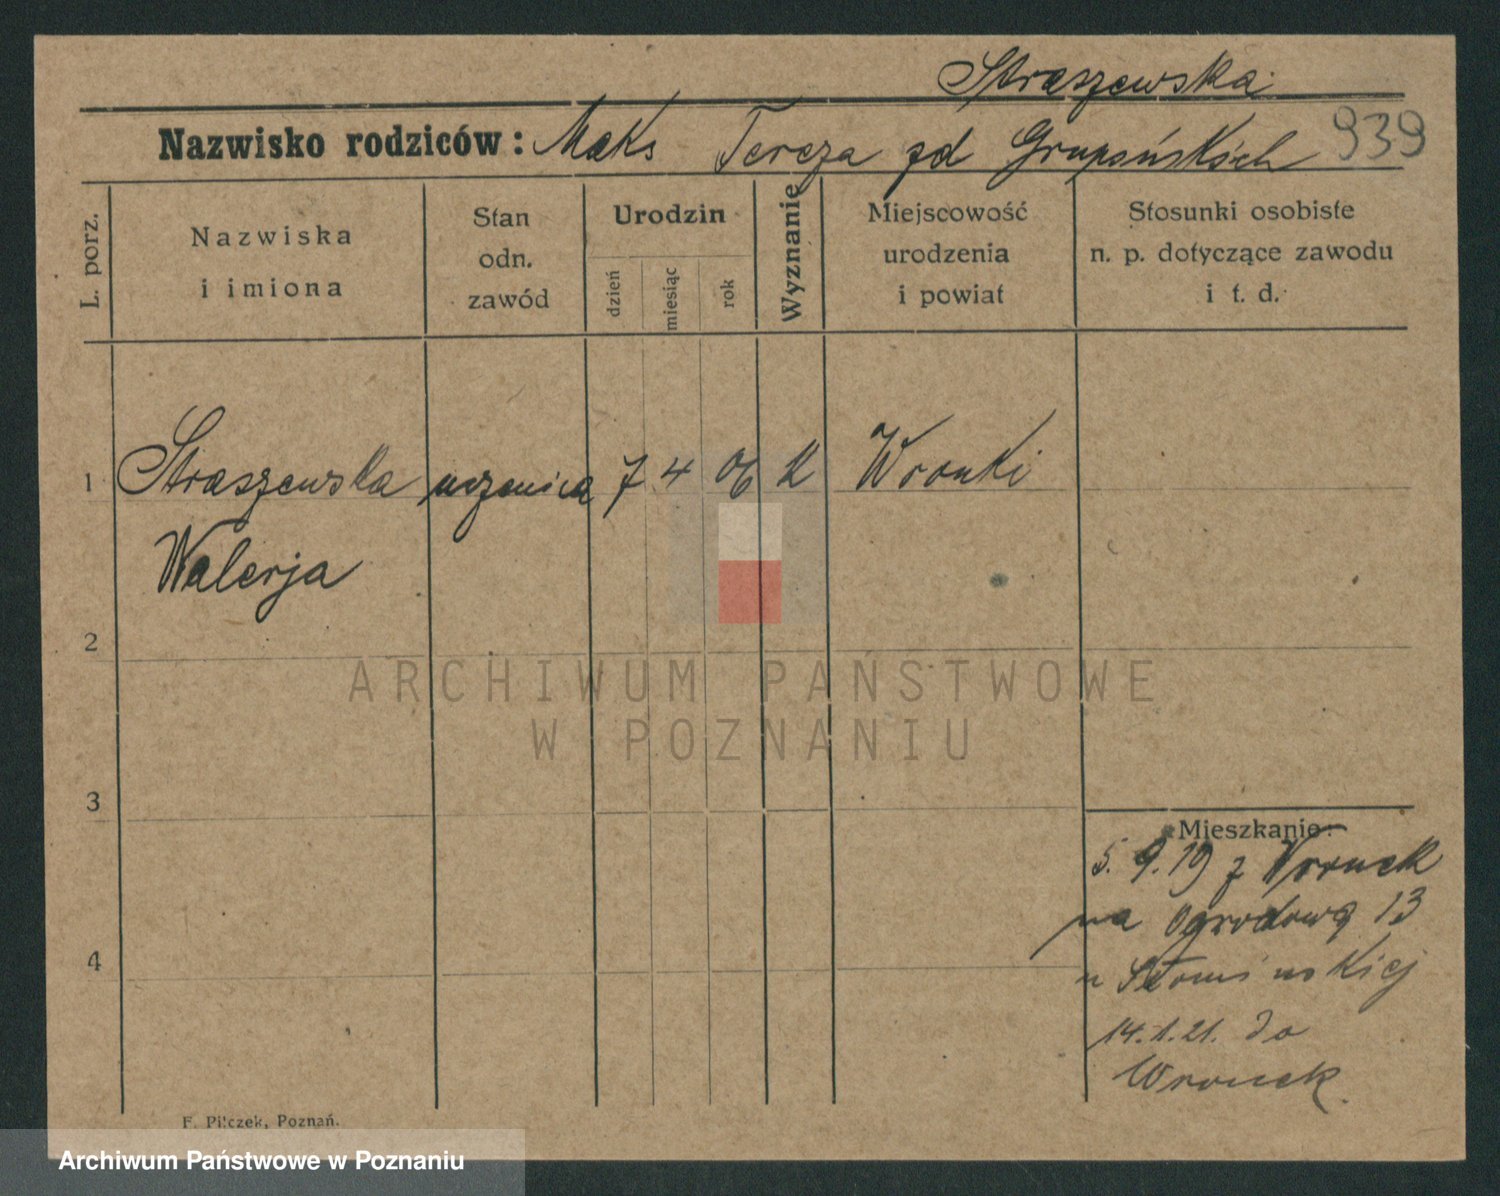 Straszewska
Nazwisko rodziców: Maks Tereza zd Grupińskich 939
L. porz.
Nazwiska
i imiona
Stan
odn.
zawód
Urodzin
dzień
miesiąc
rok
Wyznanie
Miejscowość
urodzenia
i powiat
Stosunki osobiste
n. p. dotyczące zawodu
i t. d.
1 Straszewska uczenica 7 4 06 K Wronki
Walerja
2
3
4
Mieszkanie:
5. 9. 19 z Wronek
na Ogrodową 13
u Słomińskiej
14. 1. 21. do
Wronek.
F. Pilczek, Poznań.
ARCHIWUM PAŃSTWOWE
W POZNANIU
Archiwum Państwowe w Poznaniu